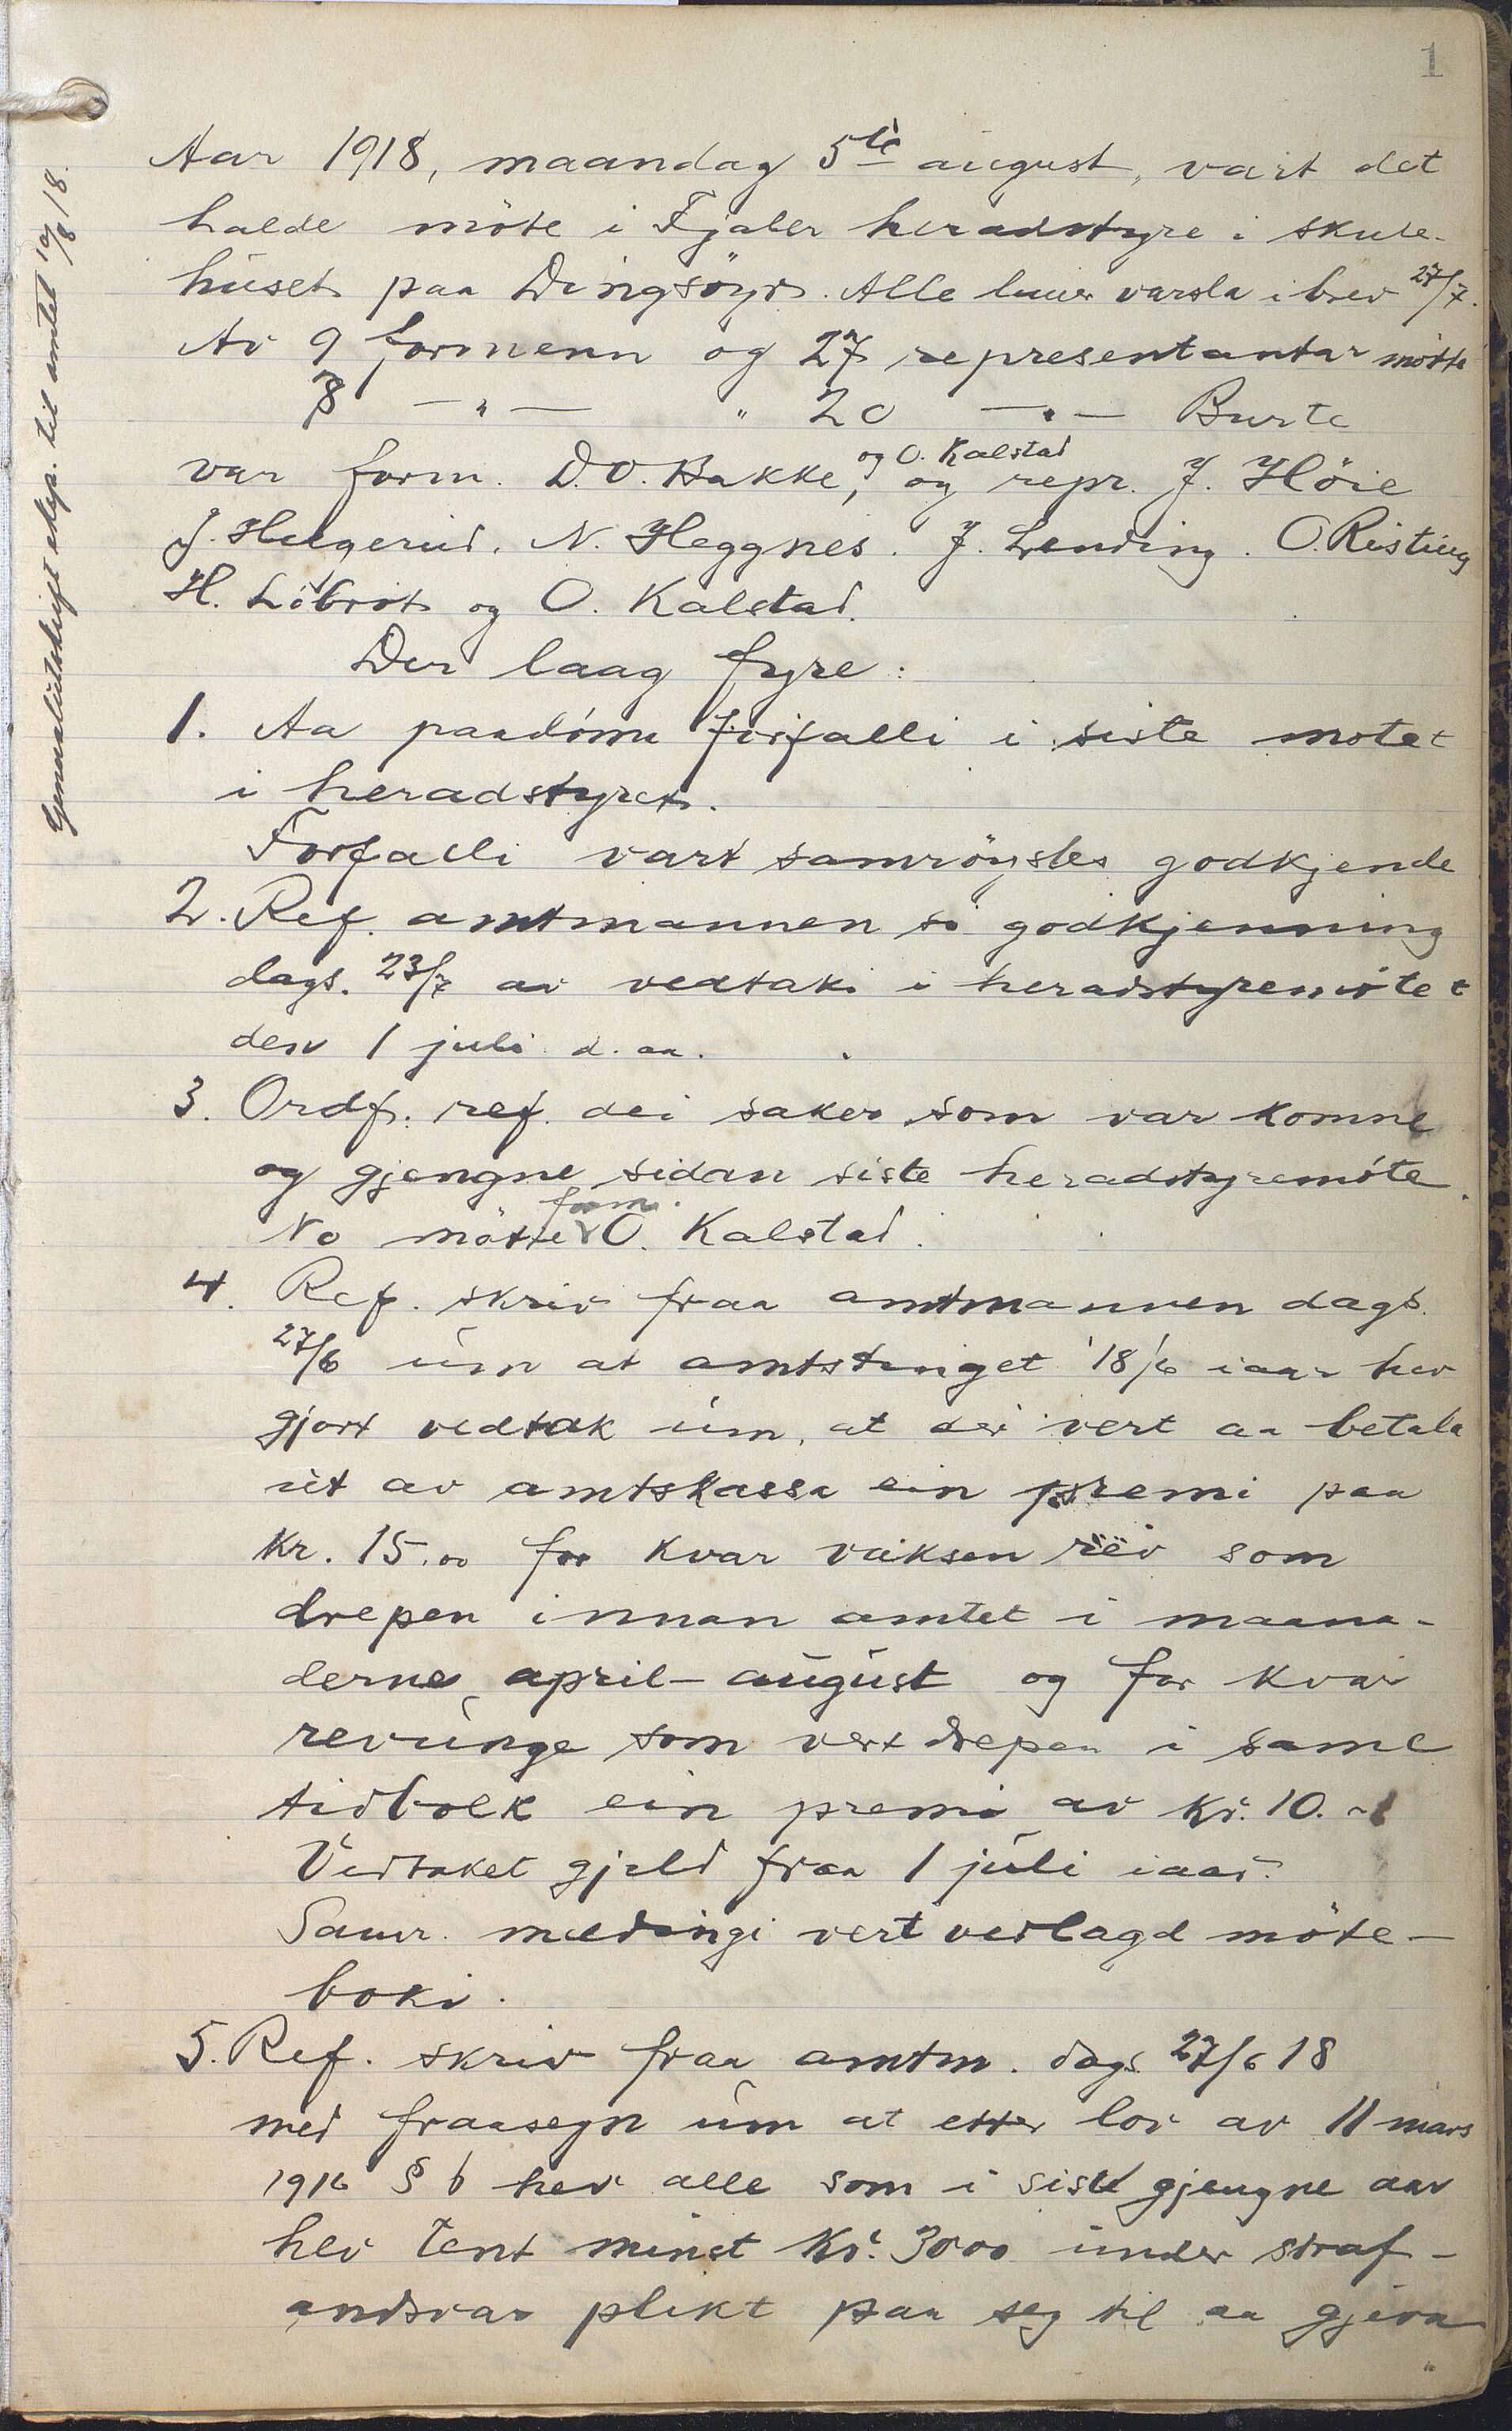 1
Aar 1918, maandag 5te august, vart det
halde möte i Fjaler heradstyre i skule-
huset paa Dingsöyr. Alle varsla i brev 27/7.
Av 9 formenn og 27 representantar mötte
8 — " — " 20 — " — Burte
var form. D.O. Bakke, og O. Kalstad og repr. J. Höie
J. Helgerud. N. Heggnes. J. Lending. O. Risting
H. Löbröt og O. Kalstad.
Der laag fyre:
1. Aa paadöma forfalli i siste mötet
i heradstyret.
Forfalli vart samröystes godkjende
2. Ref. amtmannen si godkjenning
dags. 23/7 av vedtaki i heradstyremötet
den 1 juli d. aa.
3. Ordf. ref. dei saker som var komne
og gjengne sidan siste heradstyremöte.
No mötte form. O. Kalstad.
4. Ref. skriv fraa amtmannen dags.
27/6 um at amtstinget 18/6 iaar hev
gjort vedtak um, at dei vert aa betala
ut av amtskassa ein premi paa
kr. 15.00 for kvar vaksen rev som
drepen innan amtet i maana-
derne april-august og for kvar
revunge som vert drepen i same
tidbolk ein premi av kr. 10.-
Vedtaket gjeld fraa 1 juli iaar.
Samr. meldingi vert vedlagd möte-
boki.
5. Ref. skriv fraa amtm. dags 27/6 18
med fraasegn um at etter lov av 11 mars
1916 § 6 hev alle som i siste gjengne aar
hev tent minst kr. 3000 under straf-
andsvar plikt paa seg til aa gjeva
Genusalutskrift eksp. til amtet 19/8 18.